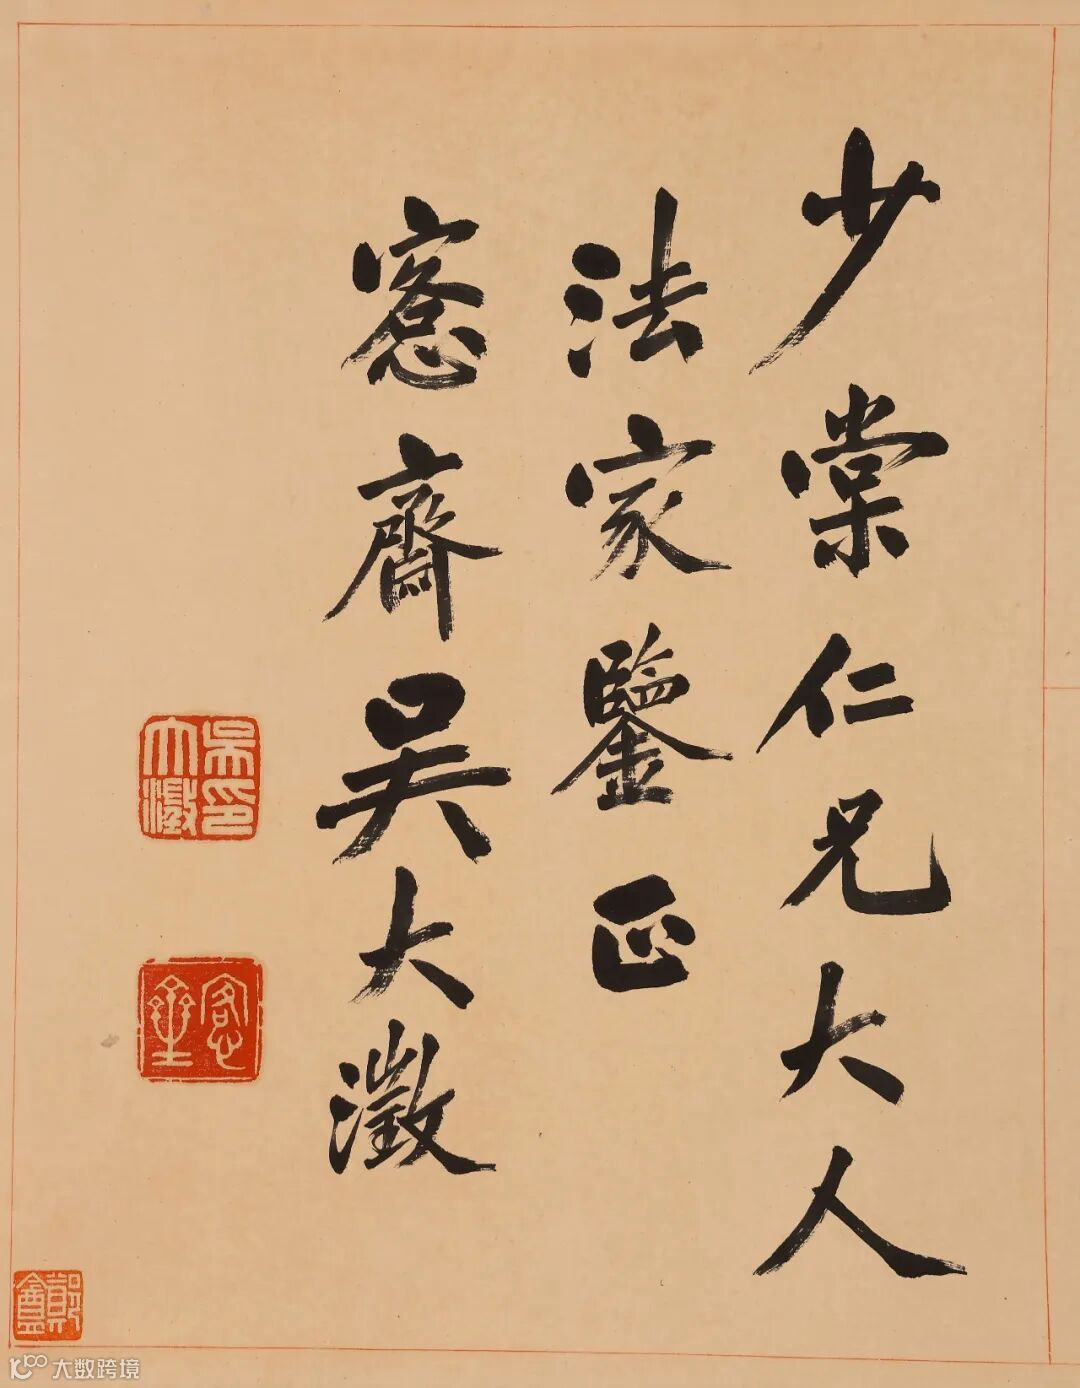 少棠仁兄大人
法家鑒正
愙齋吳大澂
吳印大澂
愙齋
大数跨境